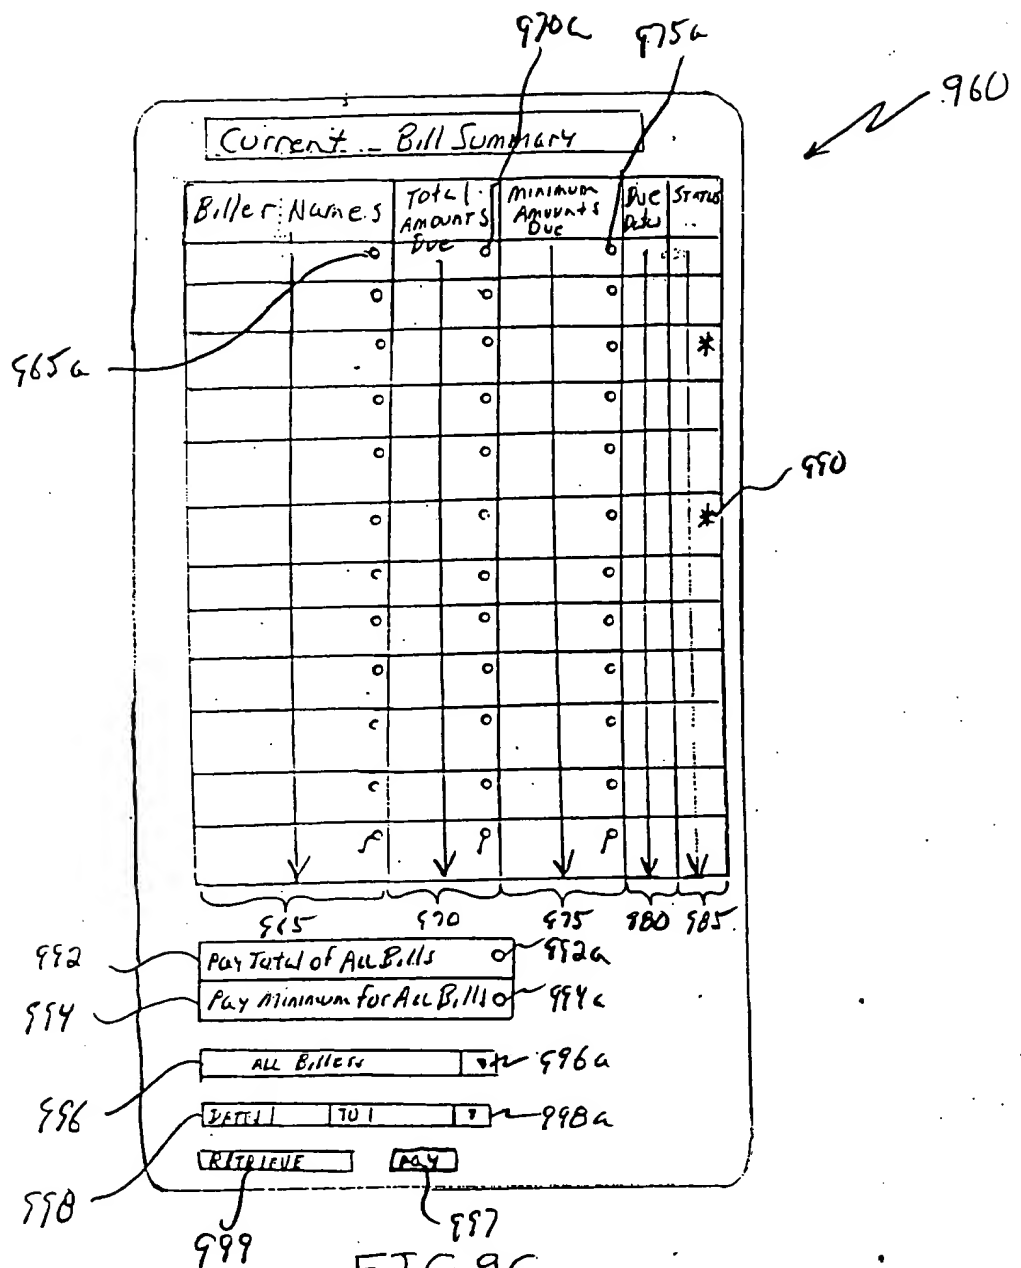 970a 975a
960
Current Bill Summary
Biller Names
Total Amounts Due
Minimum Amounts Due
Due Dates
Status
965a
*
990
*
965 970 975 980 985
992 Pay Total of All Bills 992a
994 Pay Minimum for All Bills 994a
996 ALL Billers 996a
998 DATES TO 998a
RETRIEVE PAY
999 997
FIG 9C